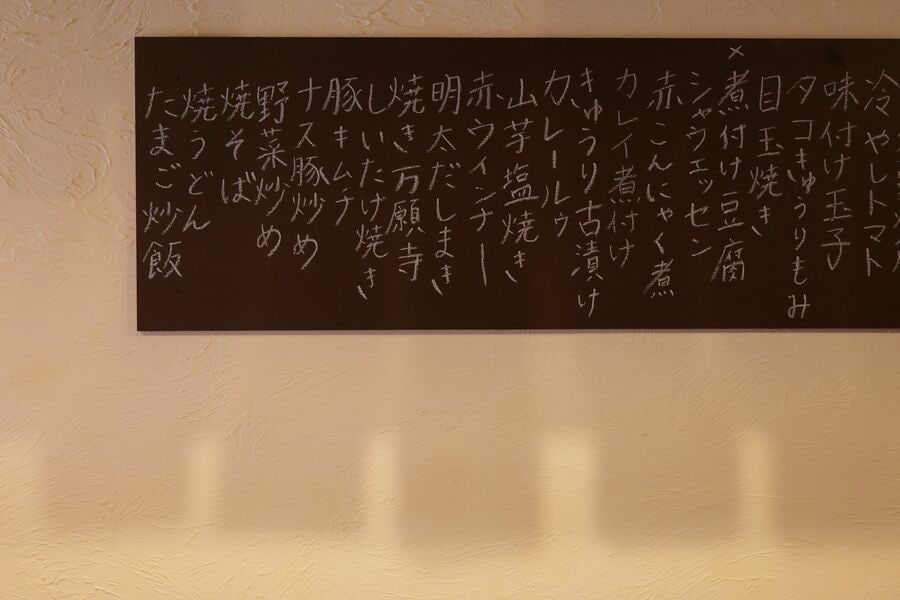 冷やしトマト
味付け玉子
タコきゅうりもみ
目玉焼き
× 煮付け豆腐
シャウエッセン
赤こんにゃく煮
カレイ煮付け
きゅうり古漬け
カレールゥ
山芋塩焼き
赤ウインナー
明太だしまき
焼き万願寺
しいたけ焼き
豚キムチ
ナス豚炒め
野菜炒め
焼そば
焼うどん
たまご炒飯